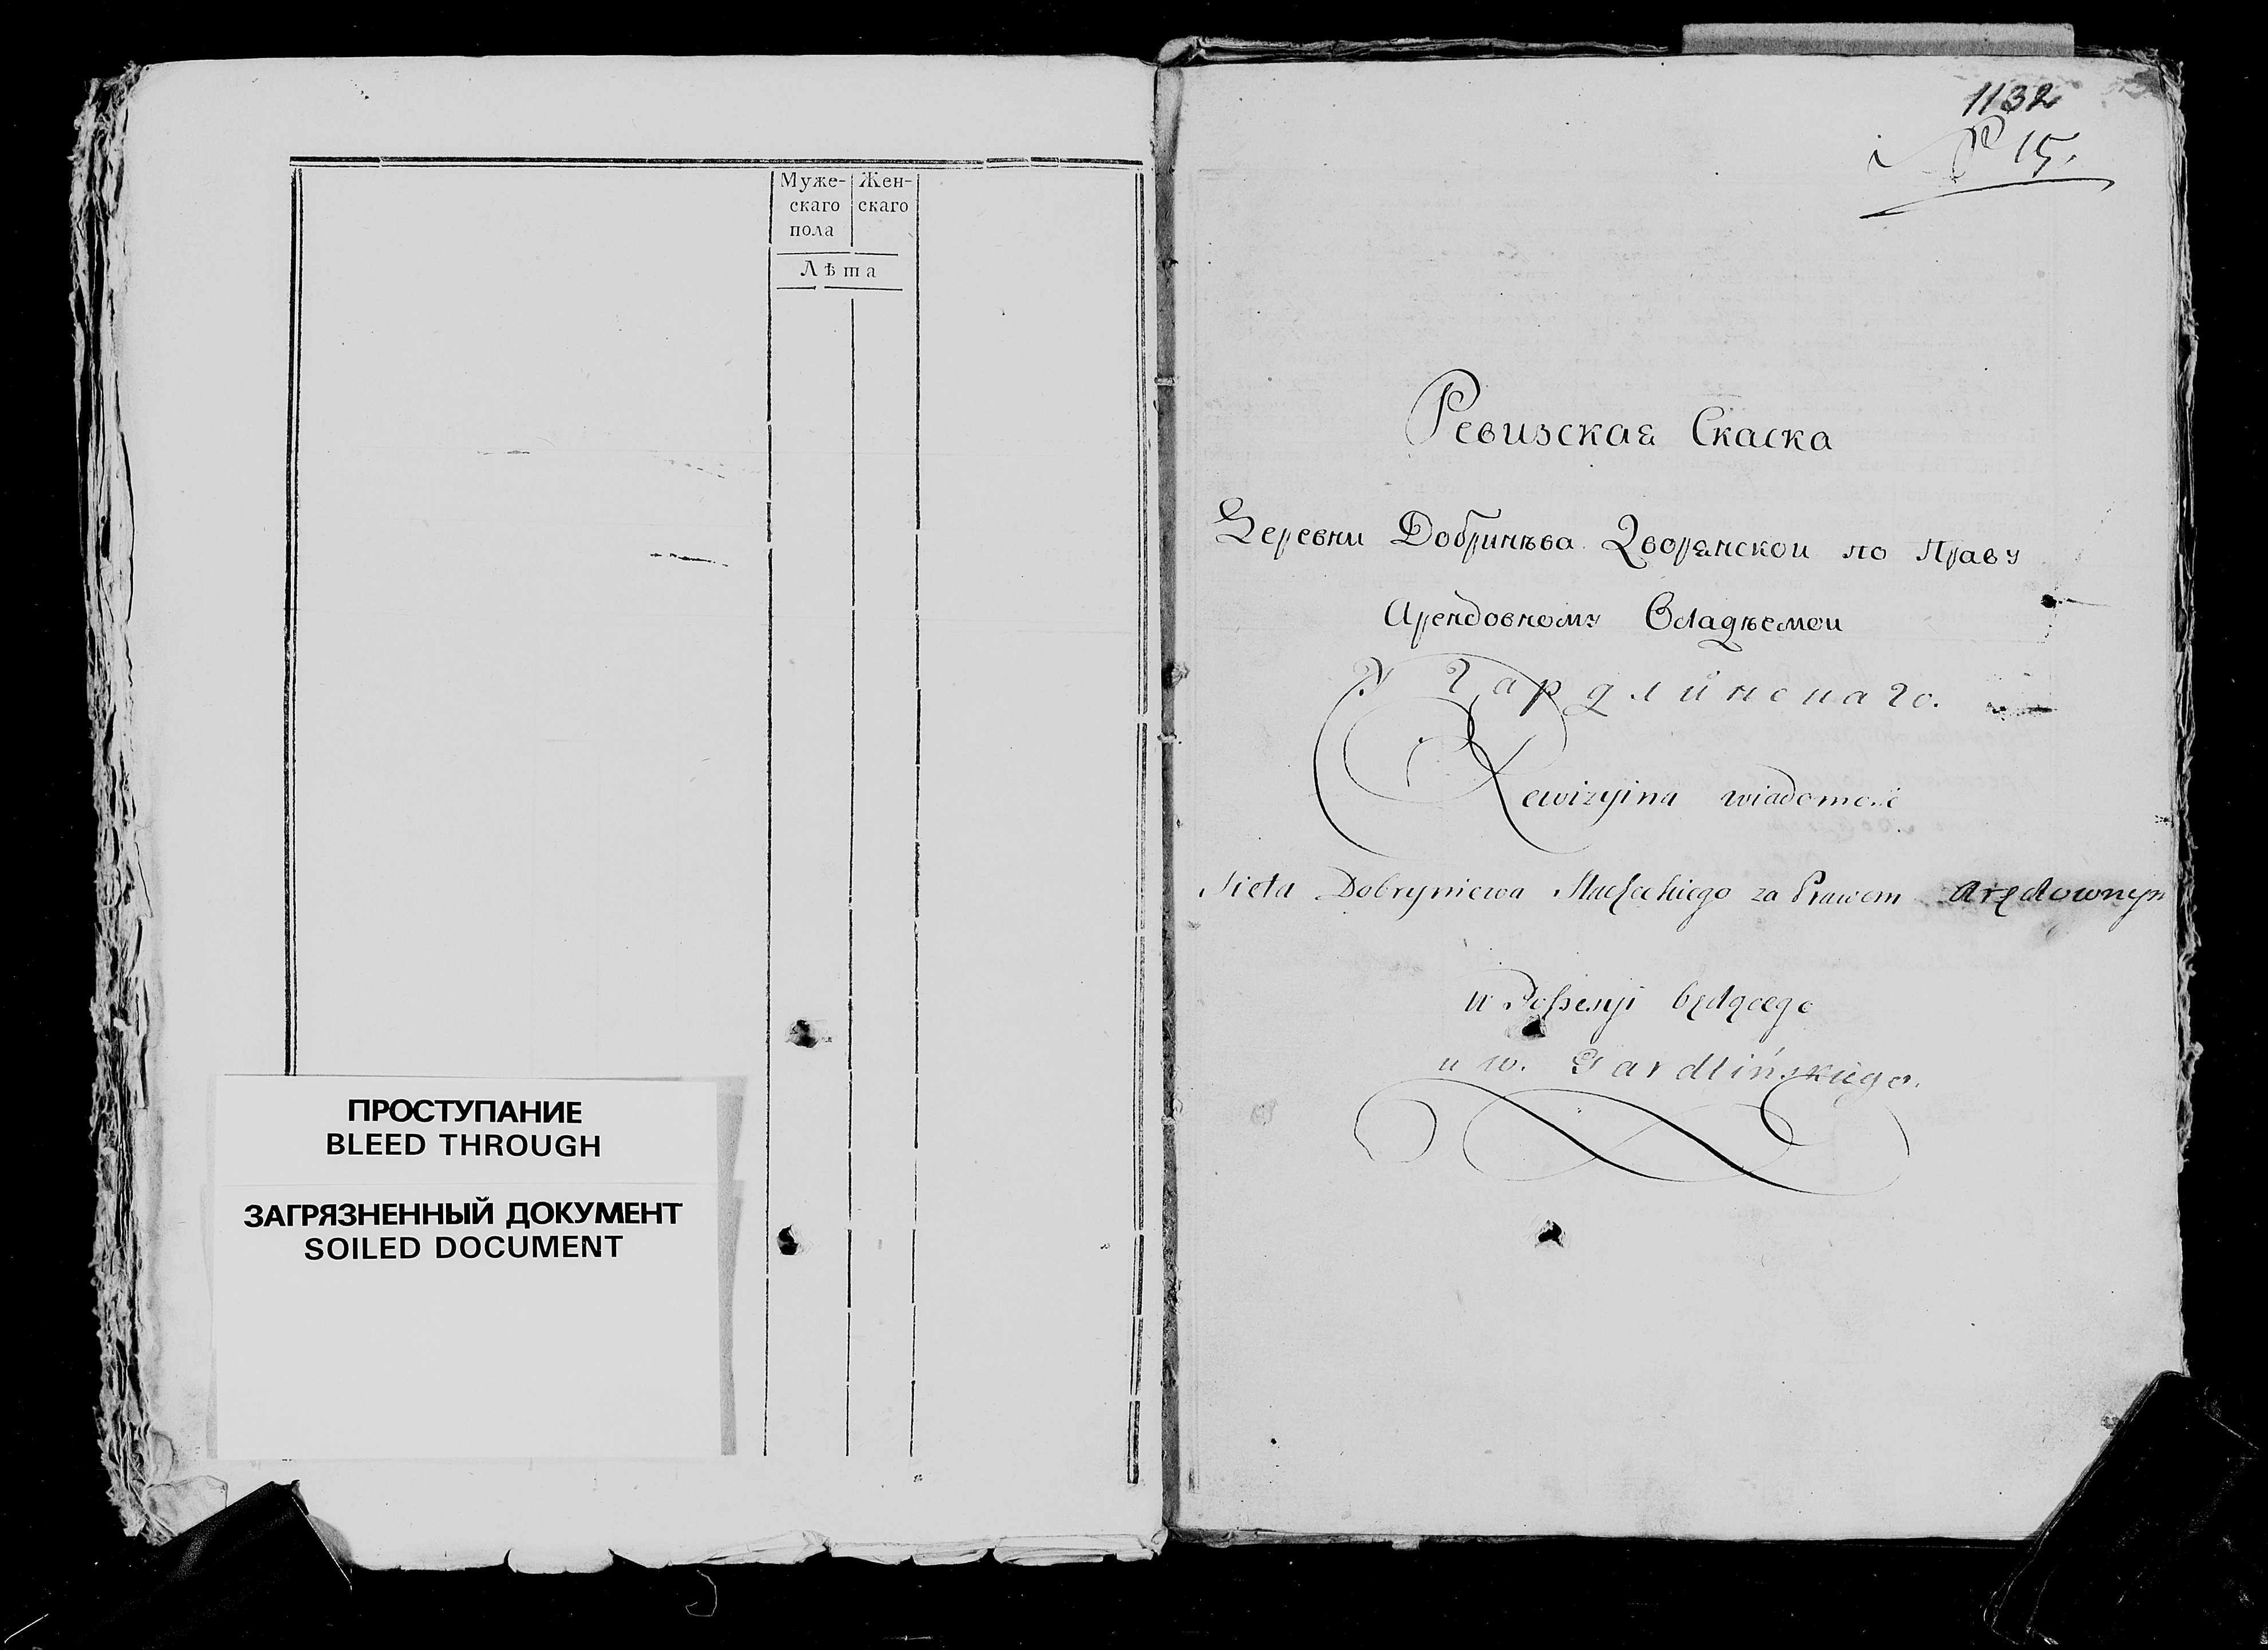 Муже- Жен-
скаго скаго
пола
Лѣта
ПРОСТУПАНИЕ
BLEED THROUGH
ЗАГРЯЗНЕННЫЙ ДОКУМЕНТ
SOILED DOCUMENT
1132
№ 15.
Ревизская Скаска
Деревни Добринѣва Дворянскои по Праву
Арендовному Владѣемои
Гардлинскаго.
Rewizyina wiadomość
Sieła Dobryniewa Szlacheckiego za Prawem Arędownym
w Possesyi będącego
u w. Gardlińskiego.